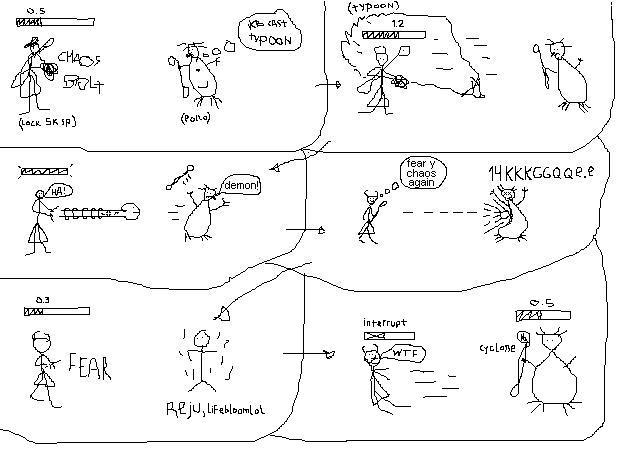 0.5
CHAOS
BOLT
(LOCK 5K SP)
KB CAST
TYPOON
(POLLO)
(TYPOON)
1.2
HA!
demon!
fear y
chaos
again
14KKKGGQQe.e
0.3
FEAR
Reju, lifebloomlol
interrupt
WTF
0.5
CYCLONE